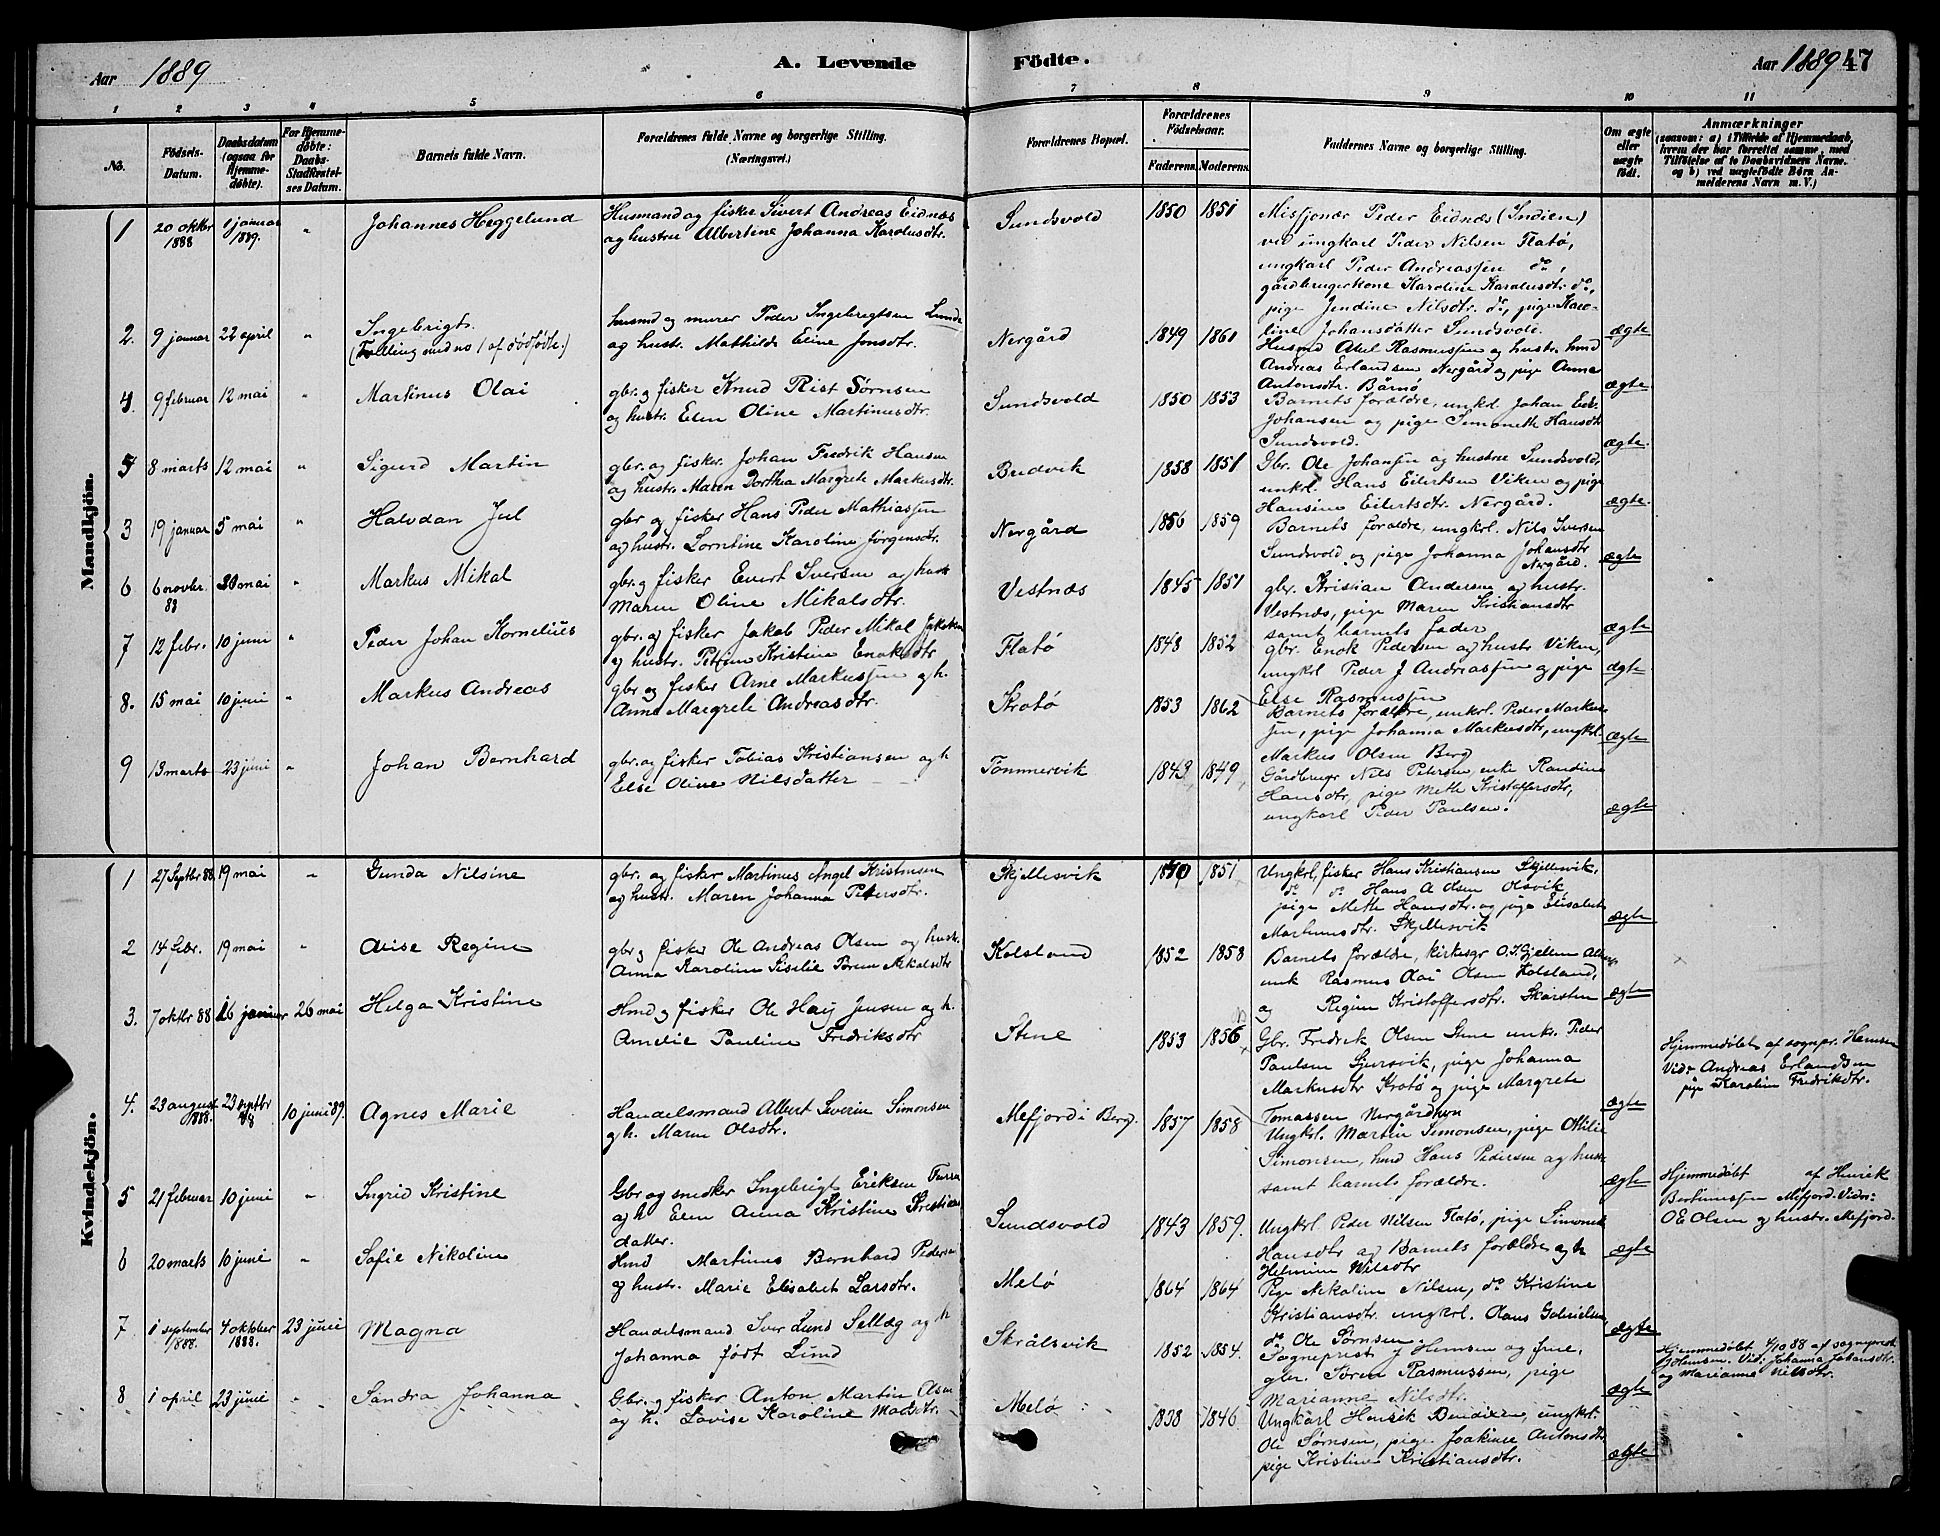 Aar 1889
A. Levende Födte.
Aar 1889 47
1 2 3 4 5 6 7 8 9 10 11
No.
Födsels-Datum.
Daabsdatum (ogsaa for Hjemmedöbte).
For Hjemmedöbte: Daabs-Stadfæstelses Datum.
Barnets fulde Navn.
Forældrenes fulde Navne og borgerlige Stilling. (Næringsvei.)
Forældrenes Bopæl.
Forældrenes Födselsaar.
Faderens. Moderens.
Faddernes Navne og borgerlige Stilling.
Om ægte eller uægte födt.
Anmærkninger
(saasom: a) i Tilfælde af Hjemmedaab, hvem der har forrettet samme, med Tilföielse af to Daabsvidners Navne. og b) ved uægtefödte Börn Anmelderens Navn m. V.)
Mandkjön.
1 20 oktbr 1888 1 januar 1889. " Johannes Heggelund
Husmand og fisker Sivert Andreas Eidnæs
og hustru Albertine Johanna Karolusdtr.
Sundsvold 1850 1851
Missjonær Peder Eidnæs (Indien)
ved ungkarl Peder Nilsen Flatø,
ungkarl Peder Andreassen do,
gårdbrugerkone Karoline Karolusdtr. do,
pige Jendine Nilsdtr. do, pige Karo-
line Johansdatter Sundsvold.
ægte
2. 9 januar 22 april " Ingebrigt.
(Tvilling med no 1 af dødfødte.)
husmd og murer Peder Ingebrigtsen Lunde
og hustr. Mathilde Eline Jonsdtr.
Nergård 1849 1860
Husmd Abel Rasmussen og hustr. hmd
Andreas Erlandsen Nergård og pige Anna
Antonsdtr. Bårnø
ægte
4. 9 februar 12 mai " Martinus Olai
gbr. og fisker Knud Rist Sørnsen
og hustr. Elen Oline Martinusdtr.
Sundsvold 1850 1853
Barnets forældre, unkl. Johan Edv.
Johansen og pige Simonette Hansdtr
Sundsvold.
ægte.
5 8 marts 12 mai " Sigurd Martin
gbr. og fisker Johan Fredrik Hansen
og hustr. Maren Dorthea Margrete Markusdtr.
Budvik 1858 1851
Gbr. Ole Johansen og hustru Sundsvold,
unkrl. Hans Eilertsen Viken og pige
Hansine Eilertsdtr. Nergård.
ægte.
3 19 januar 5 mai " Halvdan Jul
gbr og fisker Hans Peder Mathiassen
og hustr. Lorntine Karoline Jørgensdtr.
Nergård 1856 1859
Barnets forældre, ungkrl. Nils Iversen
Sundsvold og pige Johanna Johansdtr
Nergård.
ægte
6 6 novbr. 88 30 mai " Markus Mikal
gbr. og fisker Evert Iversen og hust
Maren Oline Mikalsdtr.
Vestnæs 1845 1851
gbr. Kristian Andersen og hustr.
Vestnæs, pige Maren Kristiansdtr
samt barnets fader
ægte
7 12 febr. 10 juni " Peder Johan Kornelius
gbr. og fisker Jakob Peder Mikal Jakobsen
og hustr. Petrine Kristine Enoksdtr
Flatø 1848 1852
gbr. Enok Pedersen og hustr Viken,
ungkrl Peder J Andreassen og pige
Else Rasmussen
ægte
8. 15 mai 10 juni " Markus Andreas
gbr og fisker Arne Markussen og h.
Anne Margrete Andreasdtr.
Krotø 1853 1862
Barnets forældre, unkrl. Peder Markus-
sen, pige Johanna Markusdtr, ungkl.
Markus Olsen Berg
ægte
9 13 marts 23 juni " Johan Bernhard
gbr. og fisker Tobias Kristiansen og h
Else Oline Nilsdatter
Tømmervik 1843 1849
Gårdbrugr Nils Petersen, enke Randine
Hansdtr, pige Mette Kristoffersdtr,
ungkarl Peder Paulsen.
ægte
Kvindekjön.
1 27 Septbr 88 19 mai " Gunda Nilsine
gbr. og fisker Martinus Angel Kristensen
og hustr. Maren Johanna Petersdtr.
Skjellesvik 1851
Ungkrl, fisker Hans Kristiansen Skjellesvik,
do do Hans A Olsen Olsvik,
pige Mette Hansdtr. og pige Elisabet
Martinusdtr. Skjellesvik
ægte
2 14 febr. 19 mai " Alise Regine
gbr. og fisker Ole Andreas Olsen og hust.
Anna Karoline Siselie Torine Nikolsdtr
Kolsland 1852 1858
Barnets forældre, kirkesgr O. T. Gjellem
unk Rasmus Olai Olsen Kolsland,
og Regine Kristoffersdtr. Skarsten
ægte
3. 7 oktbr 88 16 januar 26 mai Helga Kristine
Hmd og fisker Ole Haij Jensen og h.
Amelie Pauline Fredriksdtr
Stene 1853 1856
Gbr. Fredrik Olsen Stene unkr. Peder
Paulsen Gjersvik, pige Johanna
Markusdtr Krotø og pige Margrete
Tomassen Nergårdhvn
ægte
Hjemmedøbt af sognpr. Hemsen
Vidr Andreas Erlandsen
pige Karoline Fredrikdtr.
4. 23 august 1888. 23 septbr 88 10 juni 89. Agnes Marie
Handelsmand Albert Severin Simonsen
og h. Maren Olsdtr.
Mefjord i Berg. 1857 1858
Ungkrl. Martin Simonsen, pige Otilie
Simonsen, hmd Hans Pedersen og hustr
samt barnets forældre.
ægte
Hjemmedøbt af Henrik
Bertheussen Mefjord. Vidn:
O E Olsen og hustr. Mefjord.
5 21 februar 10 juni " Ingrid Kristine
Gbr og smedker Ingebrigt Eriksen Furra
og h. Elen Anna Kristine Kristians
datter.
Sundsvold 1843 1859.
Ungkrl. Peder Nilsen Flatø, pige Simonet
Hansdtr og Barnets forældre og h
Helmine Nilsdtr
ægte
6 20 marts 10 juni " Sofie Nikoline
Hmd Martinus Bernhard Pedersen
og hustr. Marie Elisabet Larsdtr.
Melø 1864 1864
Pige Nikoline Nilsen, do Kristine
Kristiansdtr. ungkrl. Claus Gabrielsen,
do Ole Sørnsen.
ægte
7 1 september 1888. 4 oktober 1888. 23 juni Magna
Handelsmand Iver Lund Selleg og h
Johanna født Lund
Skrålsvik 1852 1854.
Sogneprest J Hemsen og frue,
gbr. Søren Rasmussen, pige
Marianne Nilsdtr.
ægte
Hjemmedøbt 4/10 88 af sogneprest
J Hemsen. Vid: Johanna Johansdtr.
og Marianne Nilsdtr.
8 1 april 23 juni " Sandra Johanna
Gbr. og fisker Anton Martin Olsen
og h. Lovise Karoline Madsdtr.
Melø 1838 1846
Ungkarl Henrik Bendixen, ungkrl.
Ole Sørnsen, pige Joakime Antonsdtr
pige Kristine Kristiansdtr.
ægte